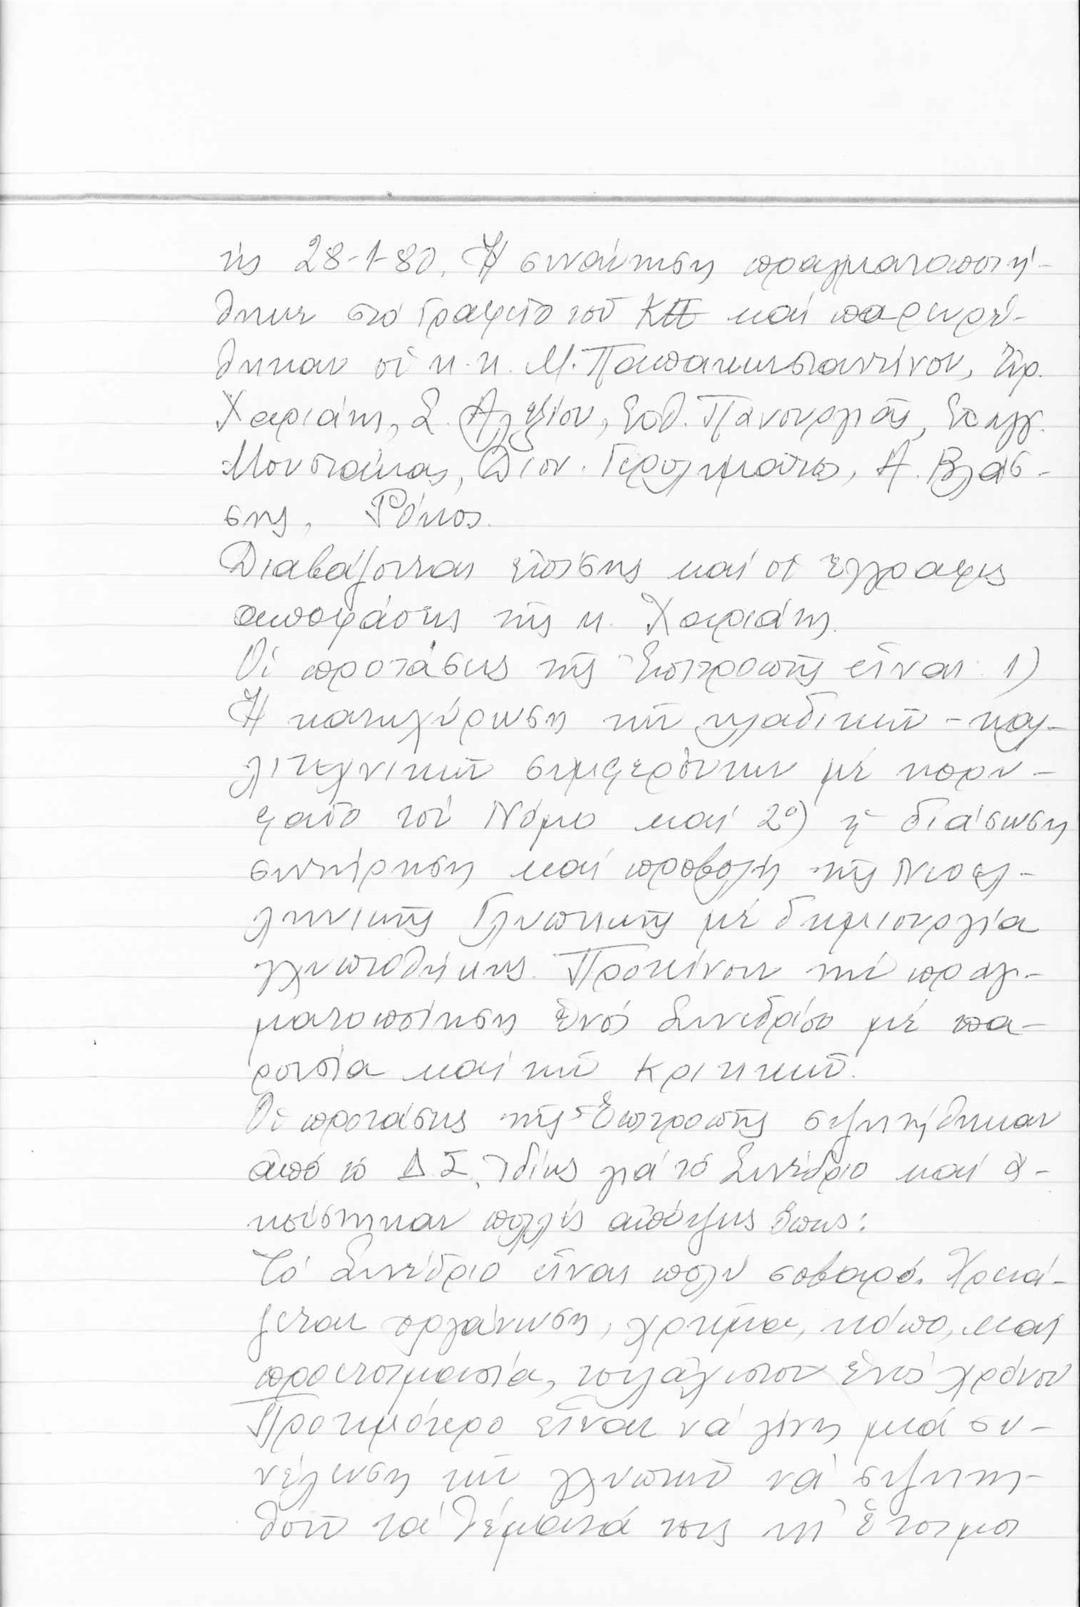 τῆς 28-1-80. Ἡ συνάντηση πραγματοποιή-
θηκε στό Γραφεῖο τοῦ καί παρευρέ-
θηκαν οἱ κ.κ. Μ. Παπακωνσταντίνου, Εἰρ.
Χαριάτη, Σ. Ἀλεξίου, Εὐθ. Πανουργιάς, Εὐαγγ.
Μουστάκας, Διον. Γερολυμάτος, Α. Βλάσ-
σης, Ρόκος.
Διαβάζονται ἐπίσης καί οἱ ἔγγραφες
ἀποφάσεις τῆς κ. Χαριάτη.
Οἱ προτάσεις τῆς Ἐπιτροπῆς εἶναι 1)
Ἡ κατοχύρωση τῶν κλαδικῶν - καλ-
λιτεχνικῶν συμφερόντων μέ κορυ-
φαῖο τόν Νόμο καί 2ο) ἡ διάσωση
συντήρηση καί προβολή τῆς Νεοελ-
ληνικῆς Γλυπτικῆς μέ δημιουργία
γλυπτοθήκης. Προτείνουν τήν πραγ-
ματοποίηση ἑνός Συνεδρίου μέ πα-
ρουσία καί τῶν κριτικῶν.
Οἱ προτάσεις τῆς Ἐπιτροπῆς συζητήθηκαν
ἀπό τό Δ.Σ. Ἰδίως γιά τό Συνέδριο καί ἀ-
κούστηκαν πολλές ἀπόψεις ὅπως:
Τό Συνέδριο εἶναι πολύ σοβαρό. Χρειά-
ζεται ὀργάνωση, χρῆμα, κόπο, καί
προετοιμασία, τουλάχιστον ἑνός χρόνου
Προτιμότερο εἶναι νά γίνη μιά συ-
νέλευση τῶν γλυπτῶν νά συζητη-
θοῦν τά θέματά τους κι' ἕτοιμοι